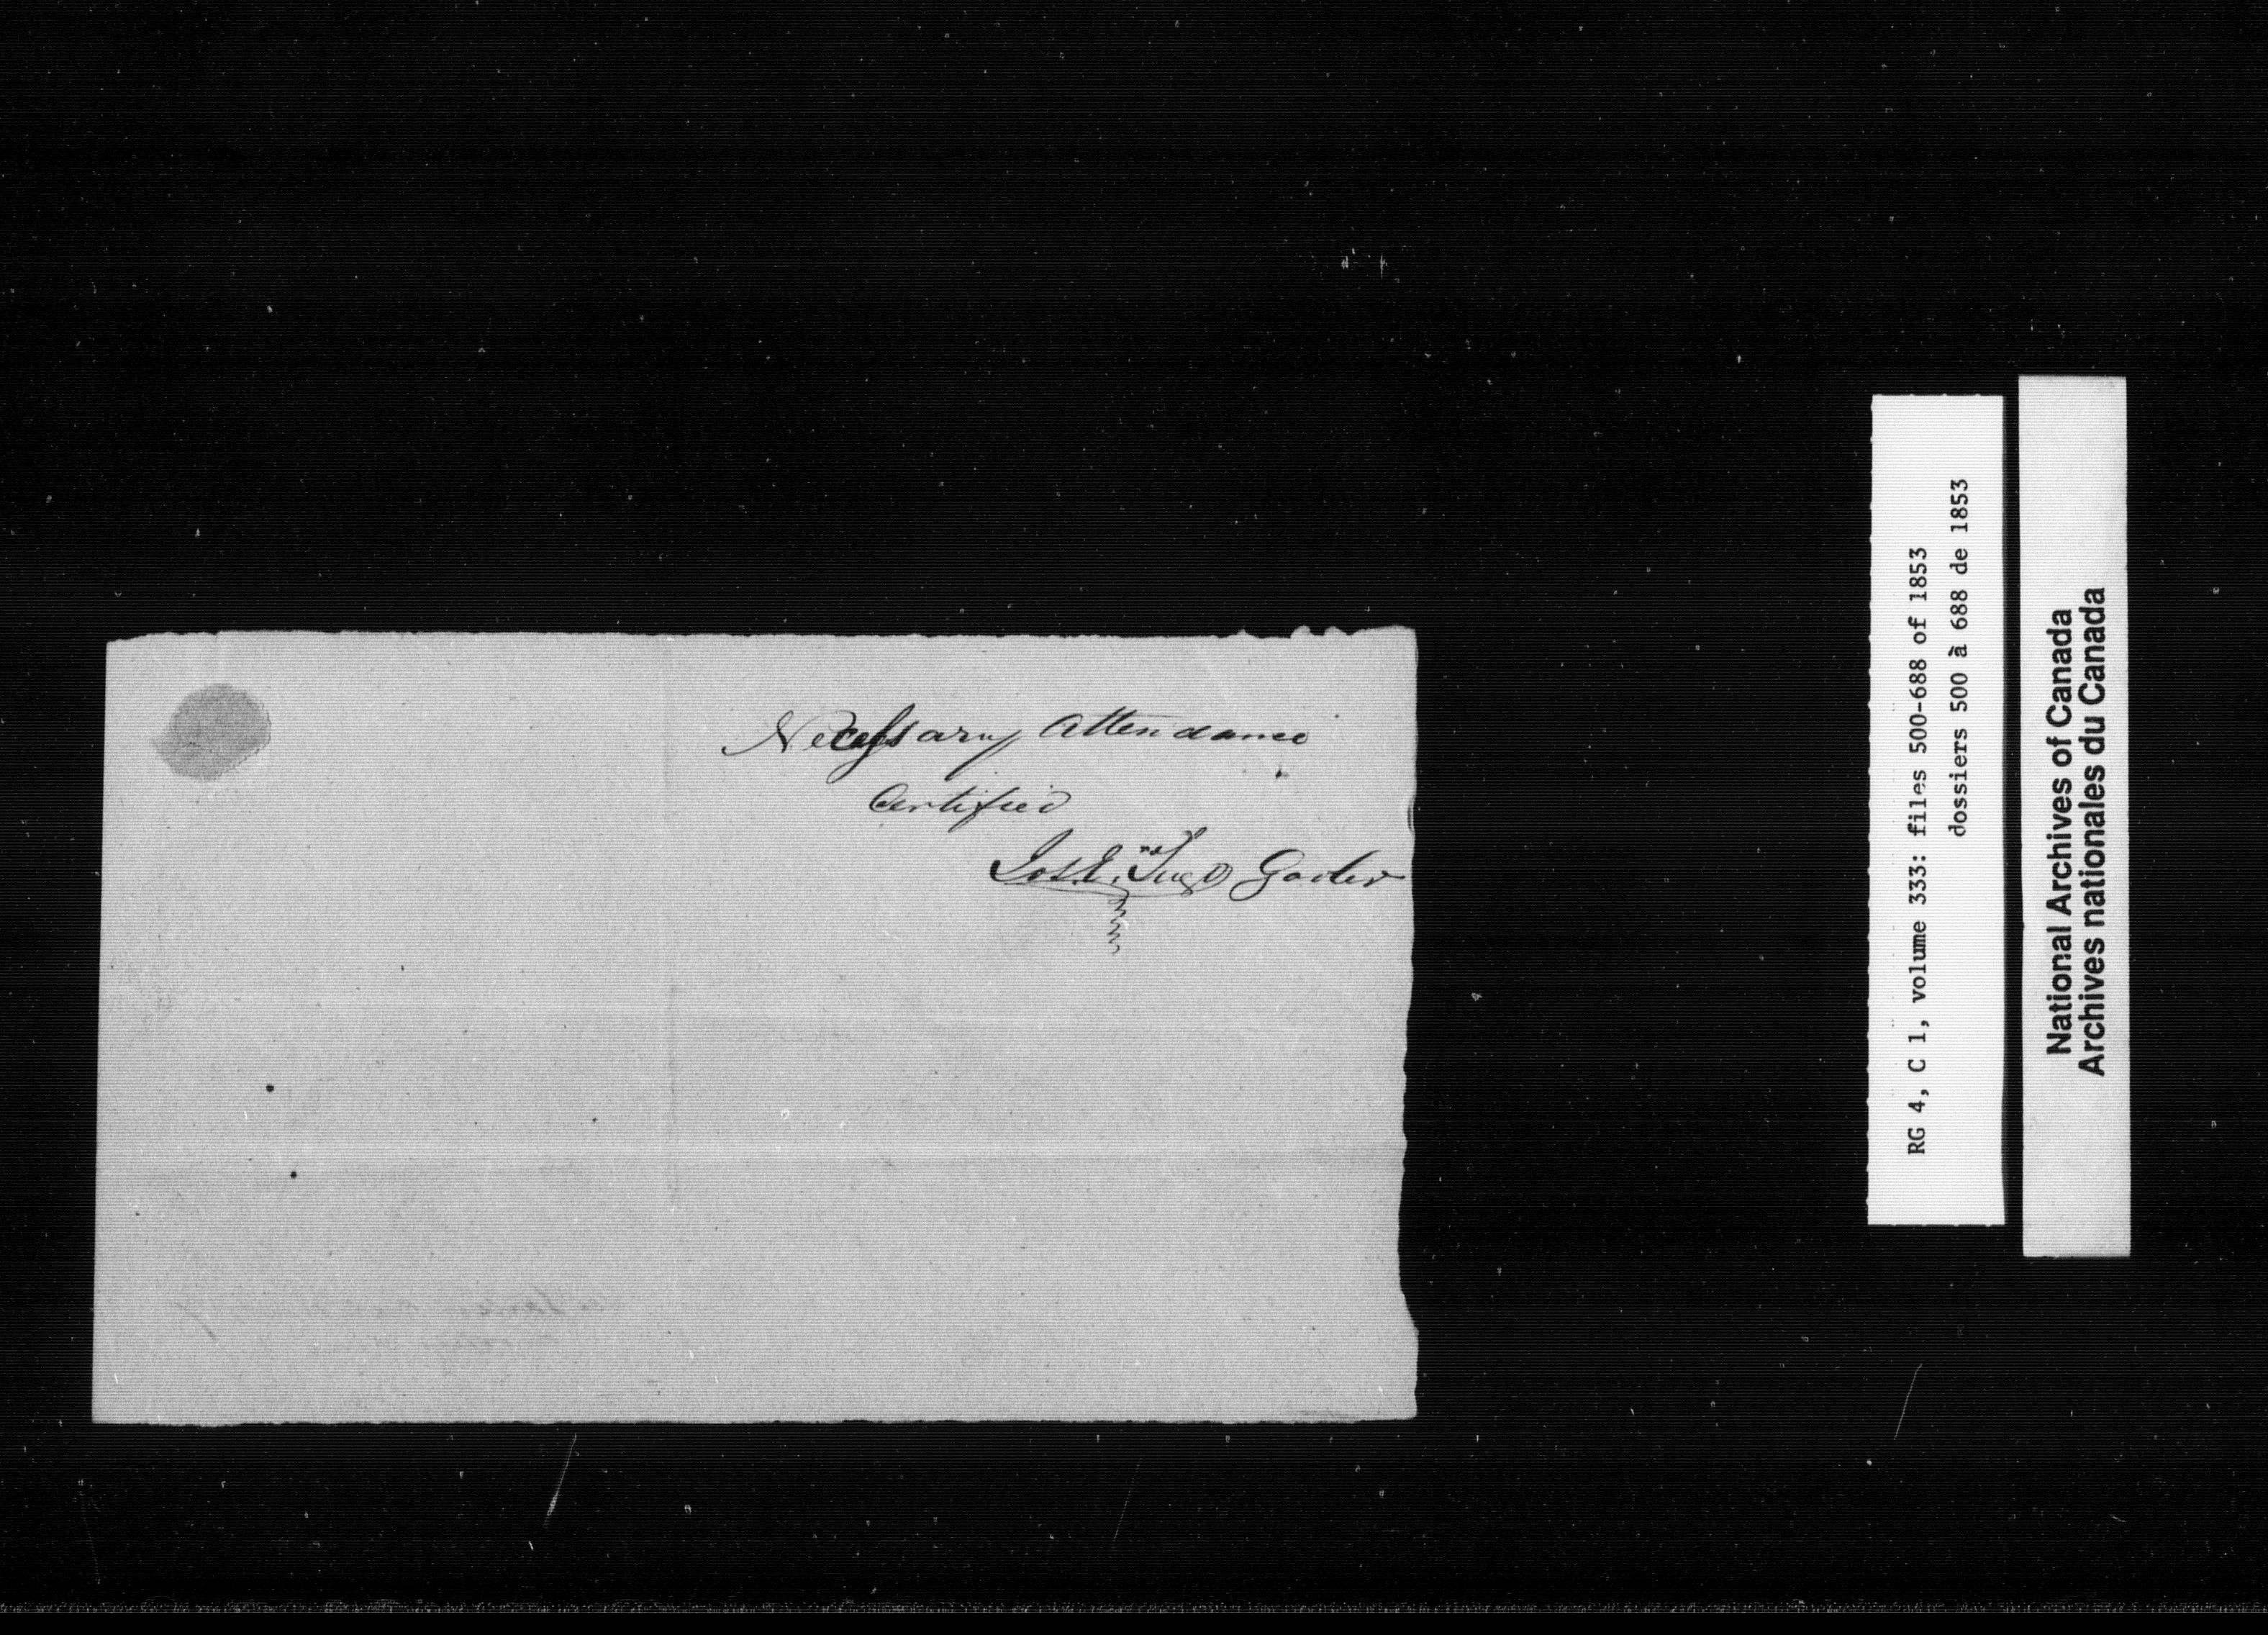 Necessary Attendance
Certified
Gaoler
RG 4, C 1, volume 333: files 500-688 of 1853
dossiers 500 à 688 de 1853
National Archives of Canada
Archives nationales du Canada